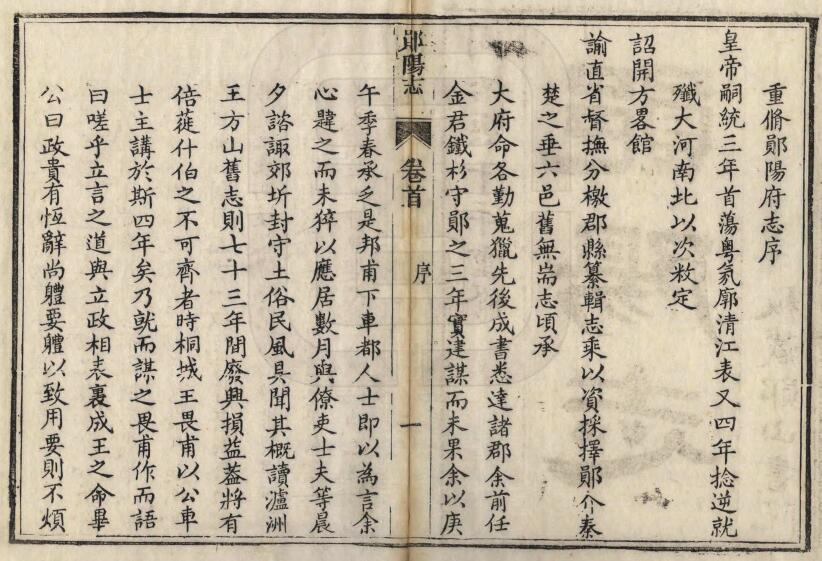 重脩鄖陽府志序
皇帝嗣統三年首蕩粤氛廓清江表又四年捻逆就
殲大河南北以次敉定
詔開方畧館
諭直省督撫分檄郡縣纂輯志乘以資採擇鄖介秦
楚之垂六邑舊無耑志頃承
大府命各勤蒐獵先後成書悉達諸郡余前任
金君鐵杉守鄖之三年實建謀而未果余以庚
鄖陽志
卷首
序
一
午季春承乏是邦甫下車都人士即以為言余
心韙之而未猝以應居數月與僚吏士夫等晨
夕諮諏郊圻封守土俗民風具聞其概讀瀘洲
王方山舊志則七十三年間廢興損益葢將有
倍蓰什伯之不可齊者時桐城王畏甫以公車
士主講於斯四年矣乃就而謀之畏甫作而語
曰嗟乎立言之道與立政相表裏成王之命畢
公曰政貴有恆辭尚體要體以致用要則不煩